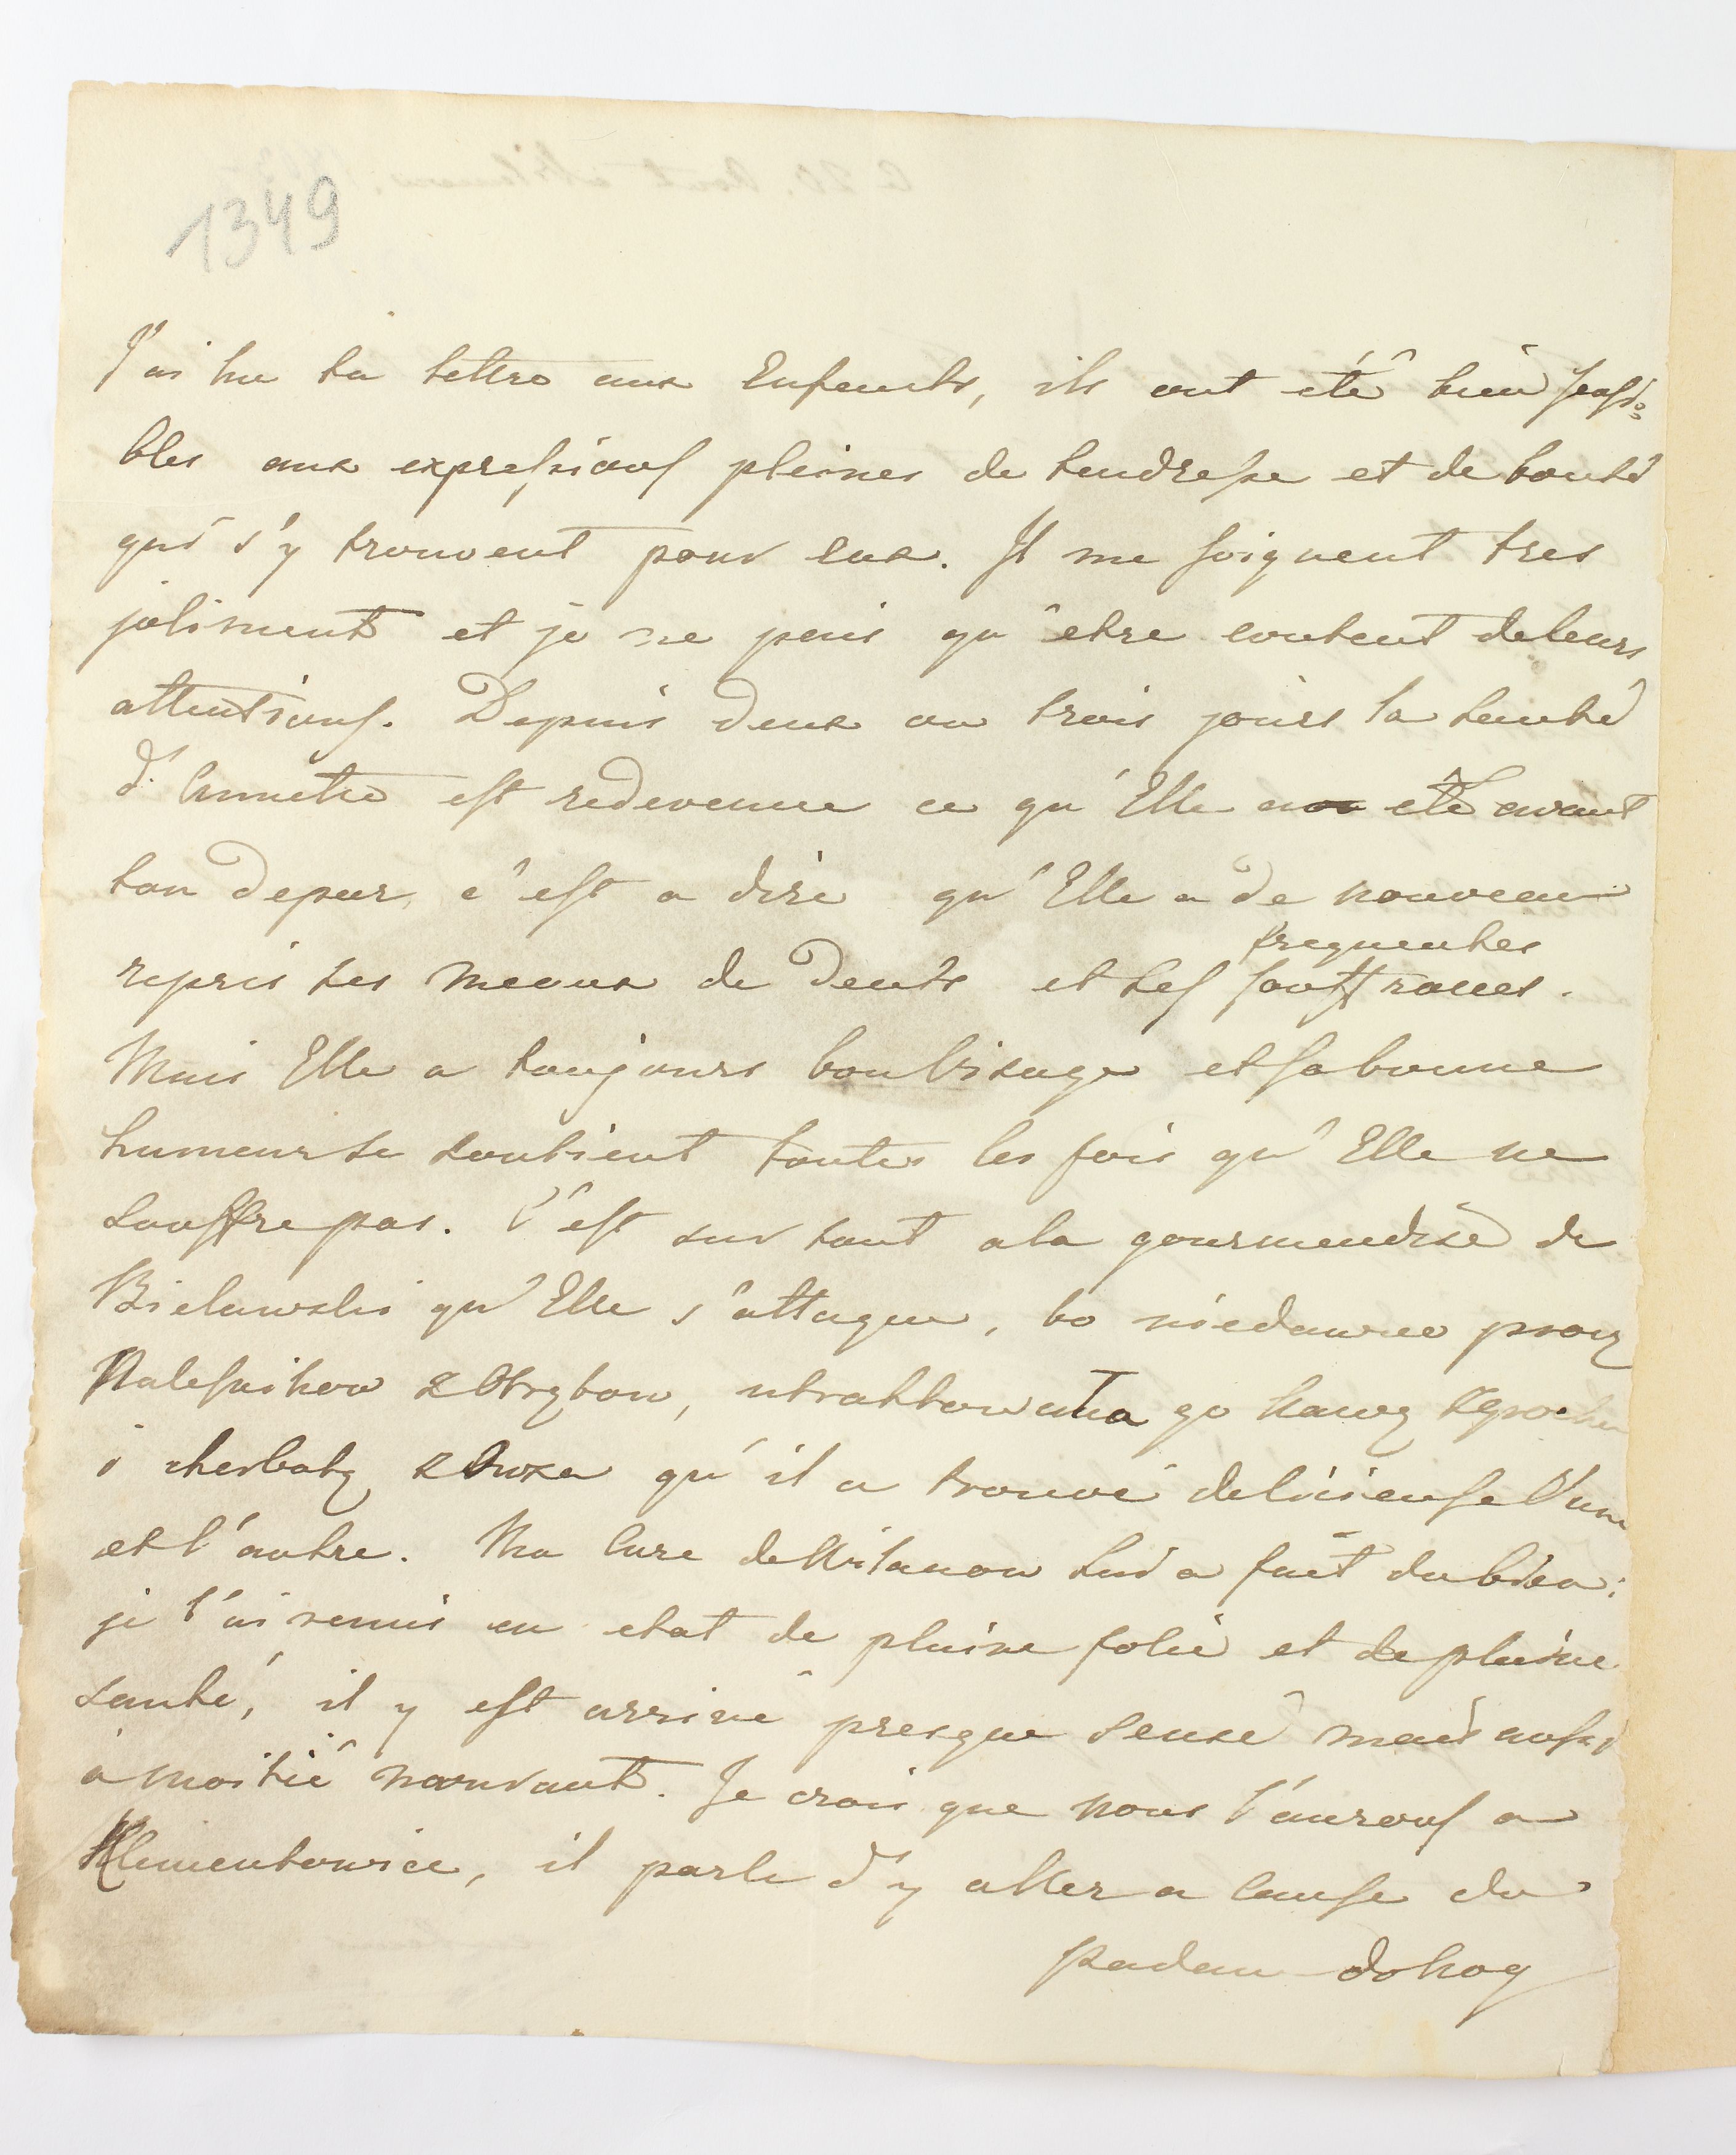 1349
J'ai lu ta lettre aux Enfants, ils ont eté bien sensi=
bles aux expressions pleines de tendresse et de bonté
qui s'y trouvent pour eux. Il me soignent tres
joliment et je ne puis qu'etre content de leurs
attentions. Depuis deux ou trois jours la santé
d'Annette est redevenue ce qu'Elle a eté avant
ton depar, c'est a dire qu'Elle a de nouveau
frequentes
repris ses meaux de dents et ses souffrances.
Mais Elle a toujours bon visage et sa bonne
humeur se soutient toutes les fois qu'Elle ne
souffre pas. C'est sur tout a la gourmendise de
Bielawski qu'Elle s'attaque, bo niedawno procz
Nalesnikow z Grzybow, utraktowała go kawą z grochu
i cherbatą z owsa qu'il a trouvé delicieuse l'une
et l'autre. Ma cure de Wilanow lui a fait du bien:
je l'ai remis en etat de pleine folie et de pleine
santé, il y est arrivé presque sensé mais aussi
a moitié mourant. Je crois que nous l'aurons a
Klementowice, il parle d'y aller a cause du